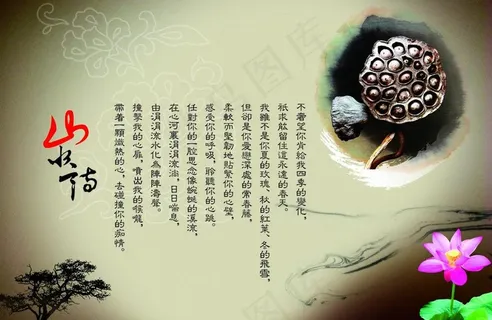 不奢望你肯給我四季的變化，
祇求能留住這永遠的春天。
我雖不是你夏的玫瑰、秋的紅葉、冬的飛雪，
但卻是你愛戀深處的常春藤，
柔軟而堅韌地貼緊你的心壁，
感受你的呼吸，聆聽你的心跳。
任對你的一股思念像蜿蜒的溪流，
在心河裏涓涓流淌，日日喘息，
由涓涓流水化為陣陣濤聲。
撞擊我的心扉，噴出我的喉嚨，
帶着一顆熾熱的心，去碰撞你的痴情。
山水诗